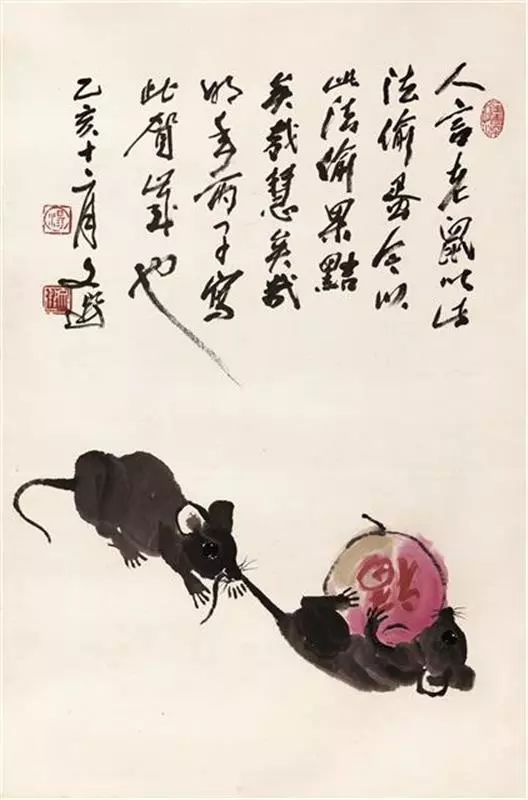 人言老鼠以此
法偷蛋今以
此法偷果黠
矣哉慧矣哉
明年丙子寫
此賀歲也
乙亥十二月
福